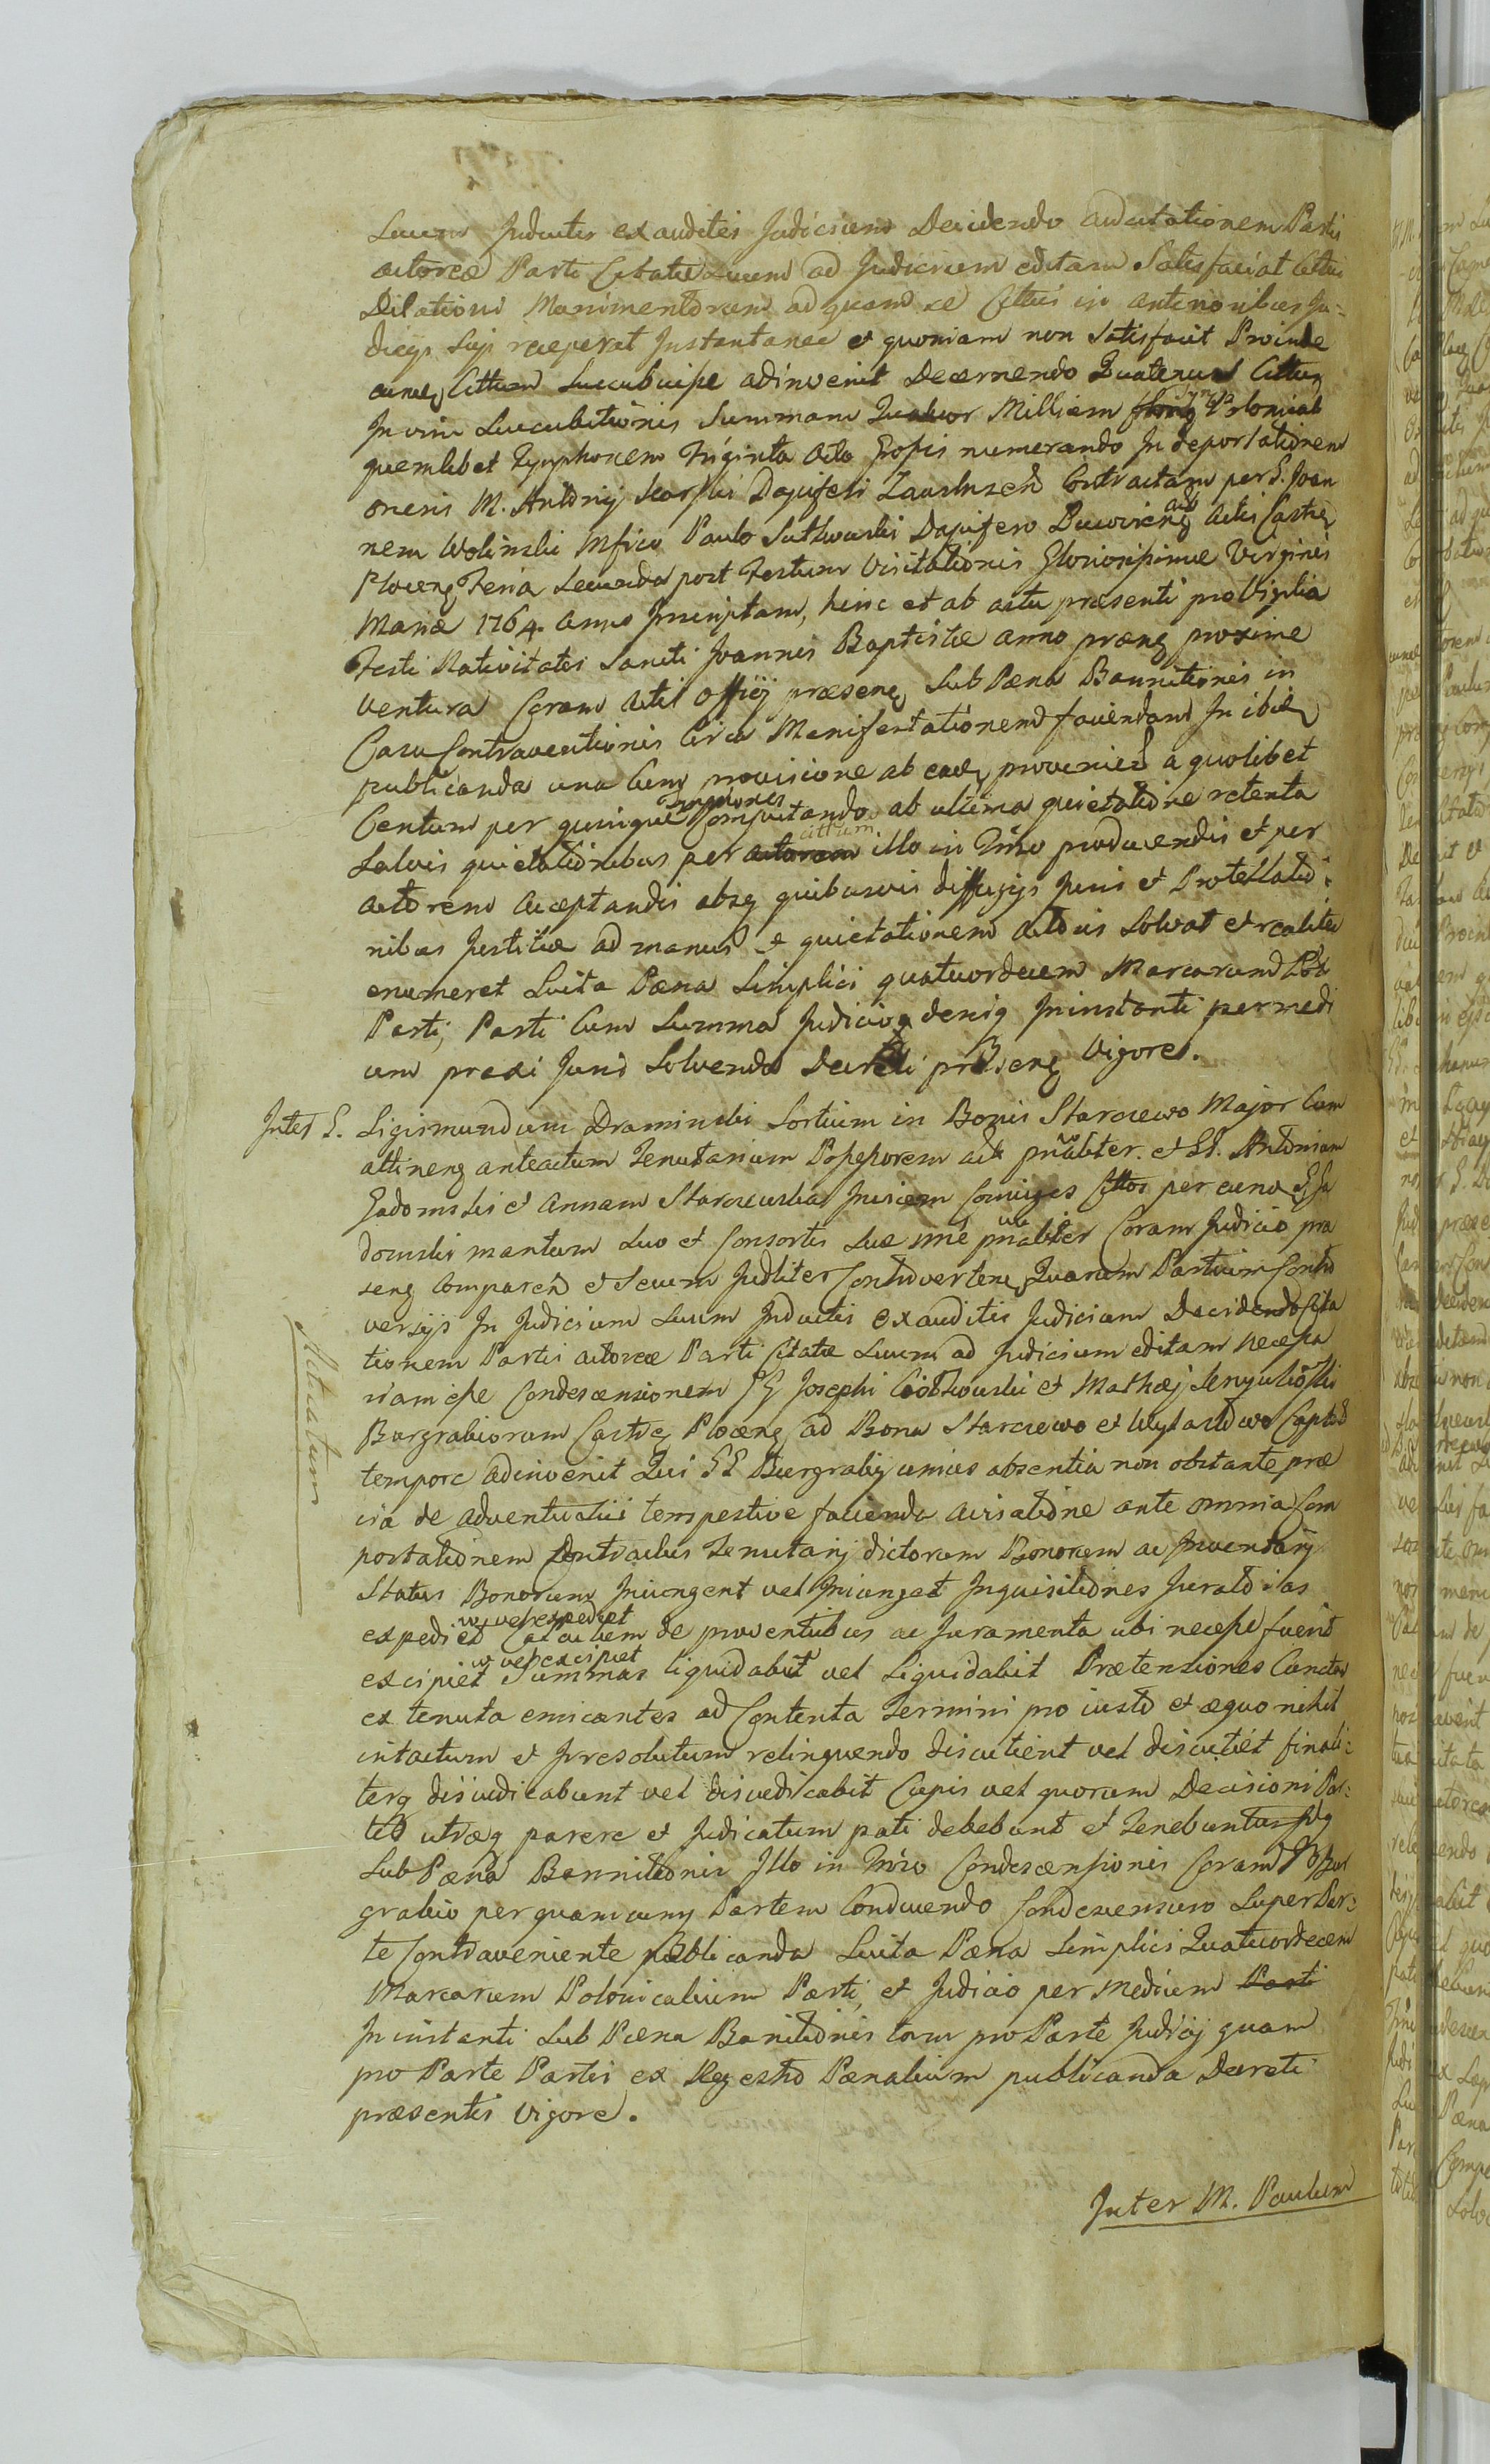 Suum Inductis exauditis Judicium Decidendo citationem Partis
actoreæ Parti Citatæ suum ad Judicium editam Satisfaciat
Dilationi Munimentorum ad quam se Cittus in anterioribus Ju-
dicijs sui receperat Instantanee et quoniam non satisfecit Proinde
eundq Cittum succubuisse adinvenit Decernendo Quatenus Cittus
In vim succubitionis Summam Quatuor Millium Polonical
quemlibet Tymphonem Triginta Octo Grossis numerando In deportationem
oneris M. Antonij Dapiferi Contractam per G. Joan
nem Wolinski Mfico Paulo Sutkowski Dapifero actis Castreq
Plocenq Feria Secunda post Festum Visitationis Gloriosissimæ Virginis
Mariæ 1764. Anno Inscriptam, hinc et ab actu præsenti pro Vigilia
Festi Nativitatis Sancti Joannis Baptistæ anno prænq proxime
ventura Coram Actis Officij præsenq sub Pæna Bannitionis in
Casu Contraventionis Circa Manifestationem faciendam In ibiq
publicanda una Cum provisione ab eadq provenien a quolibet
Centum per quinque Computando ab ultima quietatione retenta
Salvis quietationibus per actorem cittum illo in Tmno producendis et per
actorem acceptandis absq quibusvis diffugijs Juris et Protestatio-
nibus Justitiæ ad manus et quietationem actoris Solvat et realiter
enumeret Luita Pæna Simplici quatuordecem Marcarum Pol
Parti, Parti Cum Summa Judicio deniq Ininstanti per medi
um præxi Jund Solvenda Decreti præsenq Vigore.
Inter G. Sigismundum Draminski Sortium in Bonis Starczewo Major Cum
attinenq anteactum Tenutarium Possessorem act pnaliter. et GG. Antonium
Gadomski et Annam Starczewska Inivcem Conjuges Cittos per eund Ga
domski maritum suo et Consortis suæ nne pnaliter Coram Judicio præ
senq Comparen et secum Judliter Controverten Quarum Partium Contro
versijs In Judicium suum Inductis exauditis Judicium Decidendo Cita
tionem Partis actoreæ Parti Citatæ suum ad Judicium editam necessa
riam esse Condescensionem GG Josephi et Mathæj
Burgrabiorum Castrq Plocenq ad Bona Starczewo et Captd
tempore adinvenit Qui GG Burgrabij unius absentia non obstante præ
via de adventu sui tempestive facienda avisatione ante omnia Com
portationem Contractus Tenutarij dictorum Bonorum ac Inventarij
Status Bonorum Injungent vel Injunget Inquisitiones Juratorias
expedient vel expediet Calculum de proventibus ac Juramenta ubi necesse fuerit
excipient vel excipiet Summas liquidabunt vel Liquidabit Prætensiones Cunctas
ex tenuta emicantes ad Contenta Termini pro iusto et æquo nihil
intactum et Irresolutum relinquendo discutient vel discutiet finali-
terq disiudicabunt vel disiudicabit Cujus vel quorum Decisioni Par-
tes utræq parere et Judicatum pati debebunt et Tenebuntur
sub Pæna Bannitionis Illo in Tmno Condescensionis Coram Bur
grabio per quamcunq Partem Conducendo Condescensuro Super Par-
te Contraveniente publicanda Luita Pæna Simplici Quatuordecem
Marcarum Polonicalium Parti, et Judicio per medium Parti
In instanti sub Pæna Banitionis tam pro Parte Judicij quam
pro Parte Partis ex Regestro Pænalium publicanda Decreti
præsentis Vigore.
Inter M. Paulum